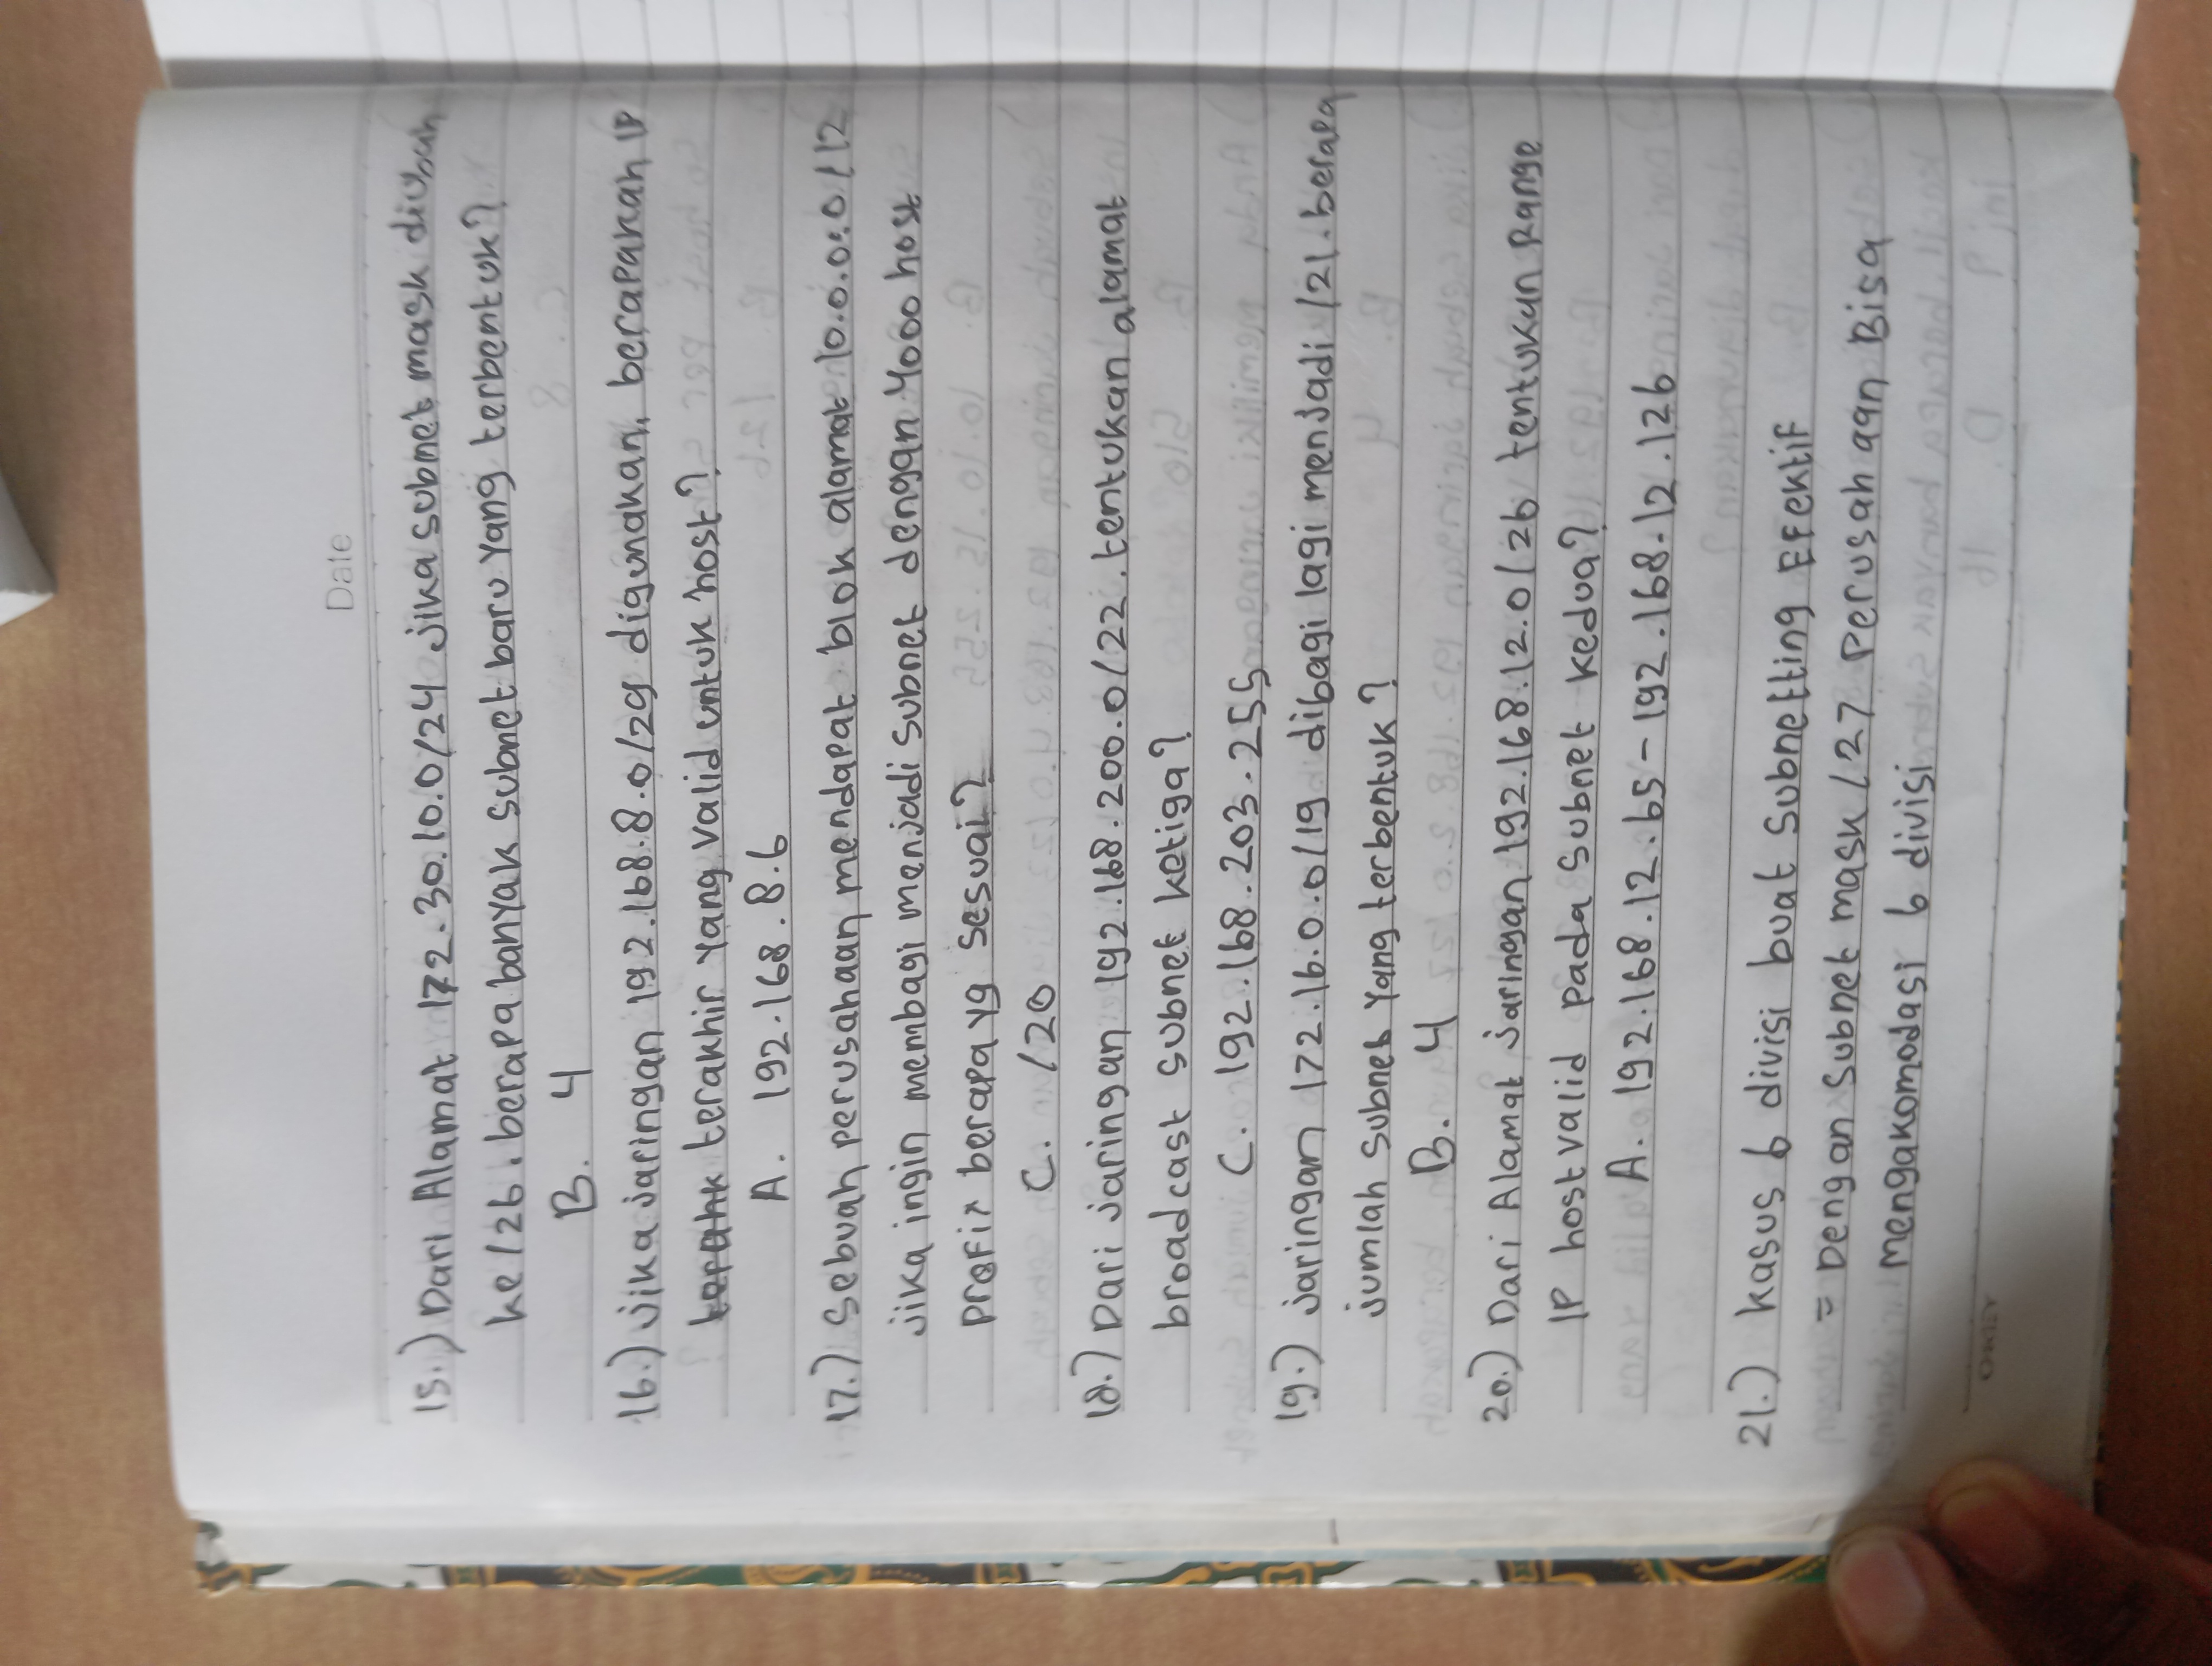 Date
15.) Dari Alamat 172.30.10.0/24 jika subnet mask diubah
ke /26. berapa banyak subnet baru yang terbentuk?
B. 4
16.) Jika jaringan 192.168.8.0/29 digunakan, berapakah IP
terakhir yang valid untuk host?
A. 192.168.8.6
17.) Sebuah perusahaan mendapat blok alamat 10.0.0.0/12
jika ingin membagi menjadi subnet dengan 4000 host
Prefix berapa yg sesuai?
C. /20
18.) Dari jaringan 192.168.200.0/22. tentukan alamat
broadcast subnet ketiga?
C. 192.168.203.255
19.) jaringan 172.16.0.0/19 dibagi lagi menjadi /21. berapa
jumlah subnet yang terbentuk?
B. 4
20.) Dari Alamat jaringan 192.168.12.0/26 tentukan Range
IP host valid pada subnet kedua?
A. 192.168.12.65 - 192.168.12.126
21.) Kasus 6 divisi buat subnetting Efektif
= Dengan subnet mask /27 Perusahaan Bisa
mengakomodasi 6 divisi
OKEY